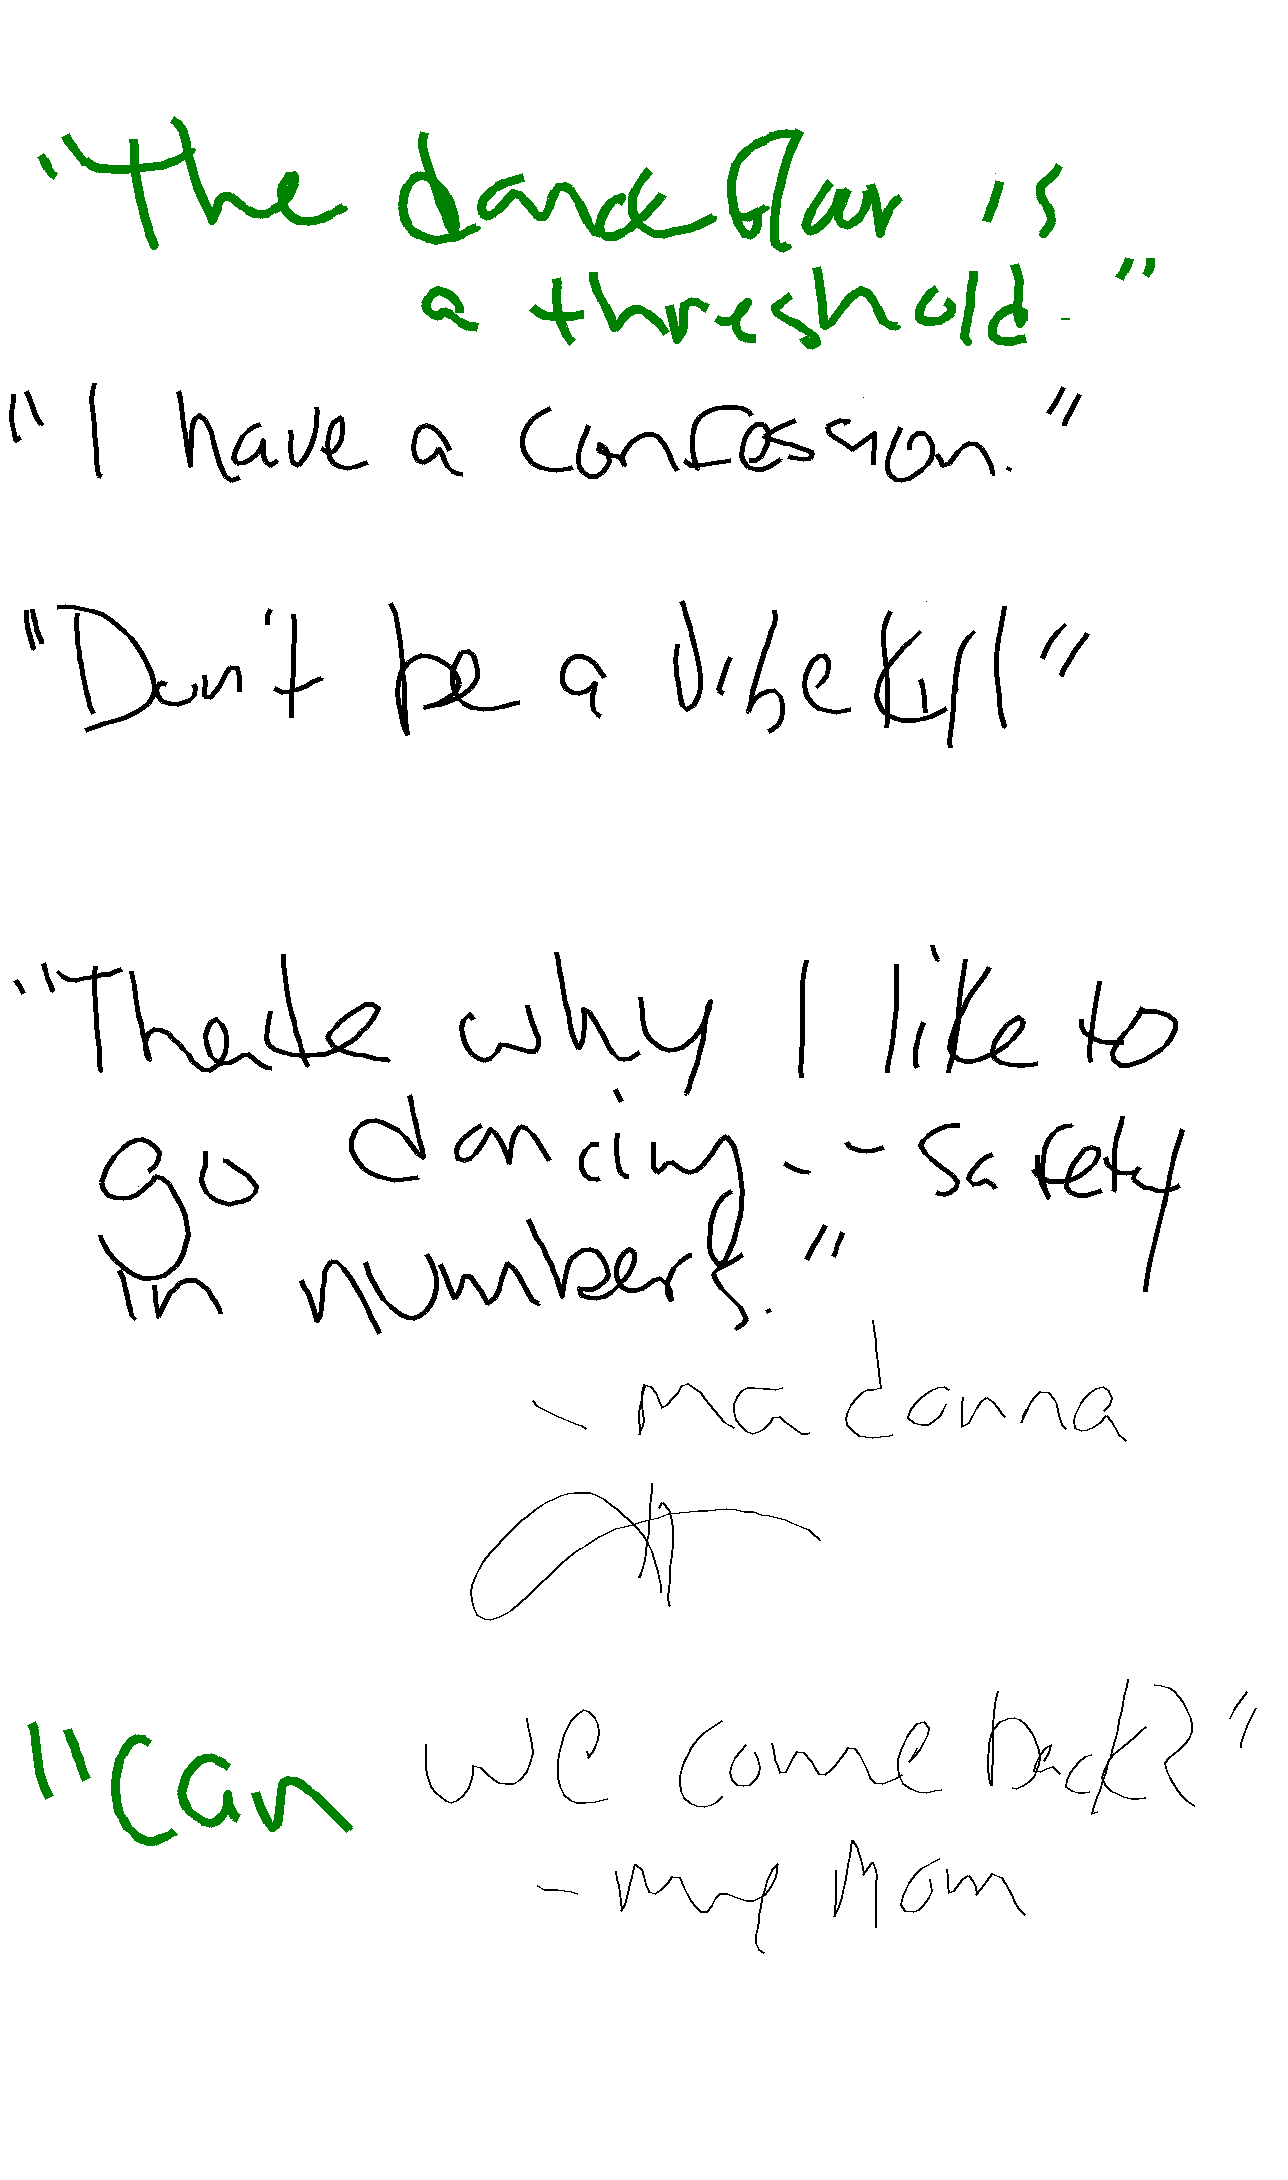 "The dance floor is
a threshold."
"I have a confession."
"Don't be a vibe kill"
why I like to
go dancing -- safety
in numbers."
- madonna
"Can we come back?"
- my Mom